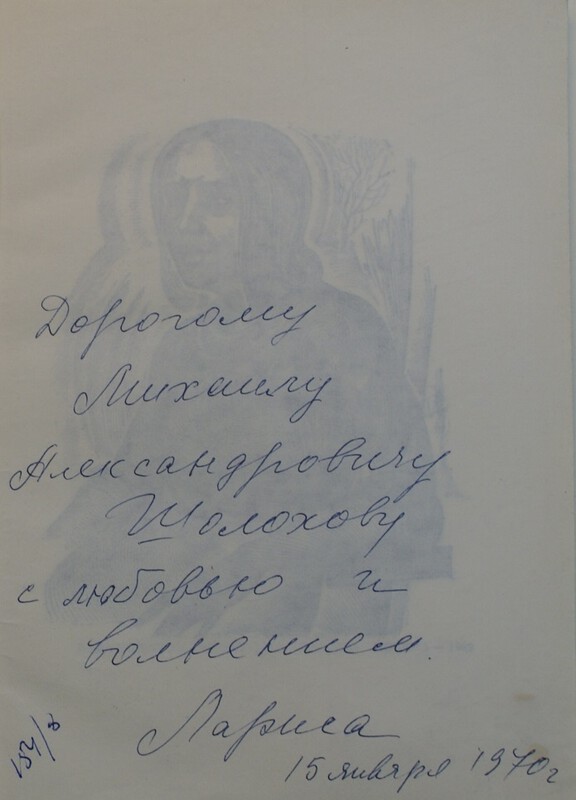 Дорогому
Михаилу
Александровичу
Шолохову
с любовью и
волнением.
Лариса
15 января 1970г